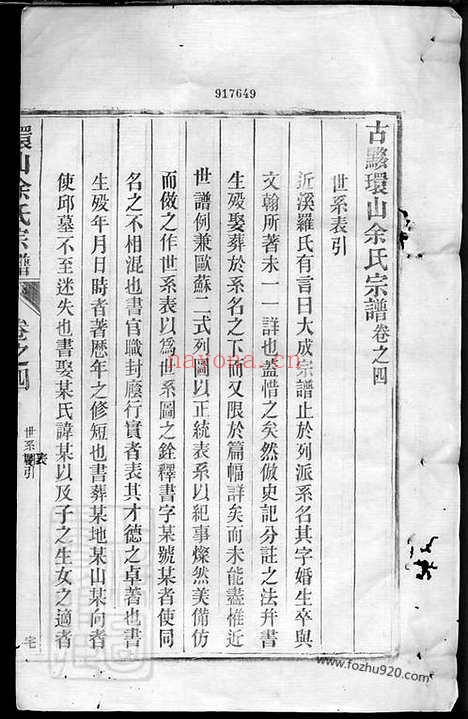 917649
古黟環山余氏宗譜卷之四
世系表引
近溪羅氏有言曰大成宗譜止於列派系名其字婚生卒與
文翰所著未一一詳也盖惜之矣然倣史記分註之法幷書
生殁娶葬於系名之下而又限於篇幅詳矣而未能盡惟近
世譜例兼歐蘇二式列圖以正統表系以紀事燦然美備仿
而做之作世系表以爲世系圖之銓釋書字某號某者使同
名之不相混也書官職封廕行實者表其才德之卓著也書
生殁年月日時者著歷年之修短也書葬某地某山某向者
使邱墓不至迷失也書娶某氏諱某以及子之生女之適者
環山余氏宗譜
卷之四
世系表引
宅
nayona.cn
www.fozhu920.com